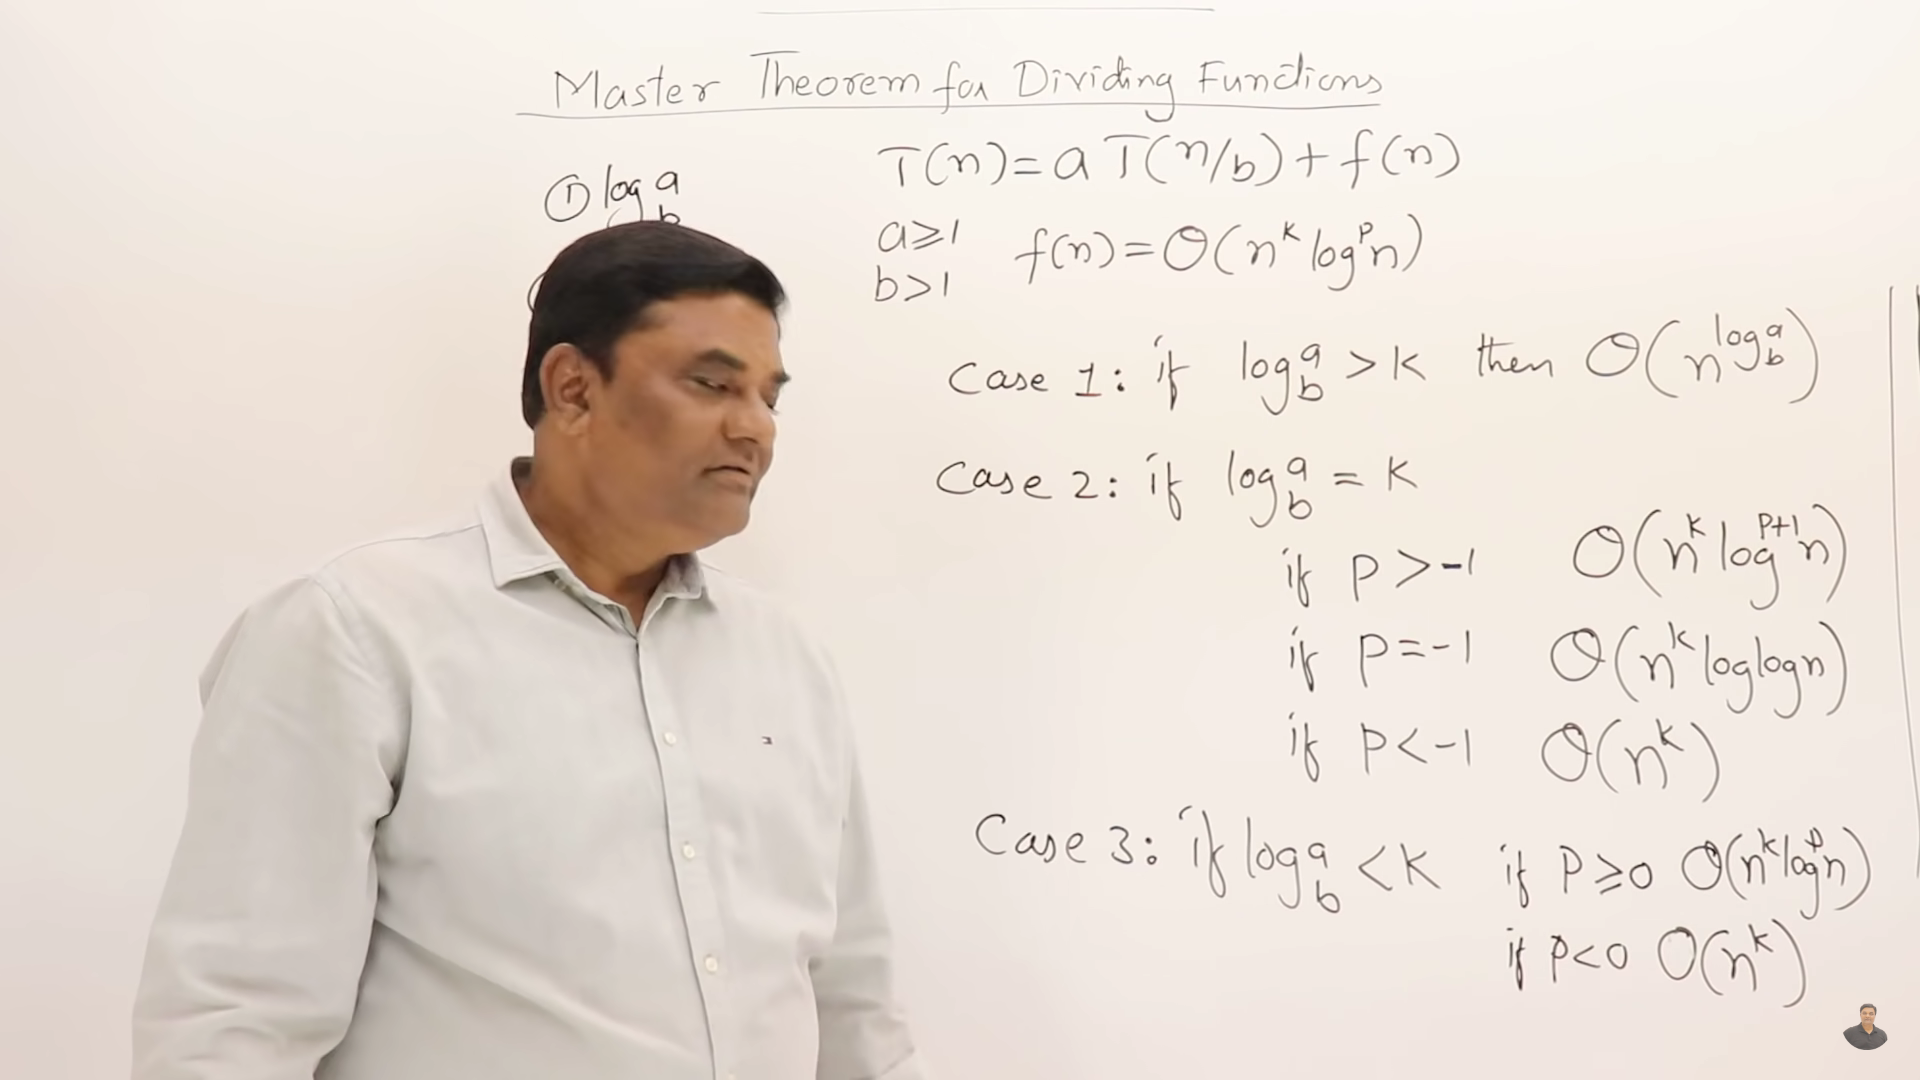 Master Theorem for Dividing Functions
① log_b a
T(n) = a T(n/b) + f(n)
a ≥ 1
b > 1
f(n) = Θ(n^k log^p n)
Case 1: if log_b a > k then Θ(n^(log_b a))
Case 2: if log_b a = k
if P > -1 Θ(n^k log^(p+1) n)
if P = -1 Θ(n^k loglogn)
if P < -1 Θ(n^k)
Case 3: if log_b a < k if P ≥ 0 Θ(n^k log^p n)
if P < 0 O(n^k)